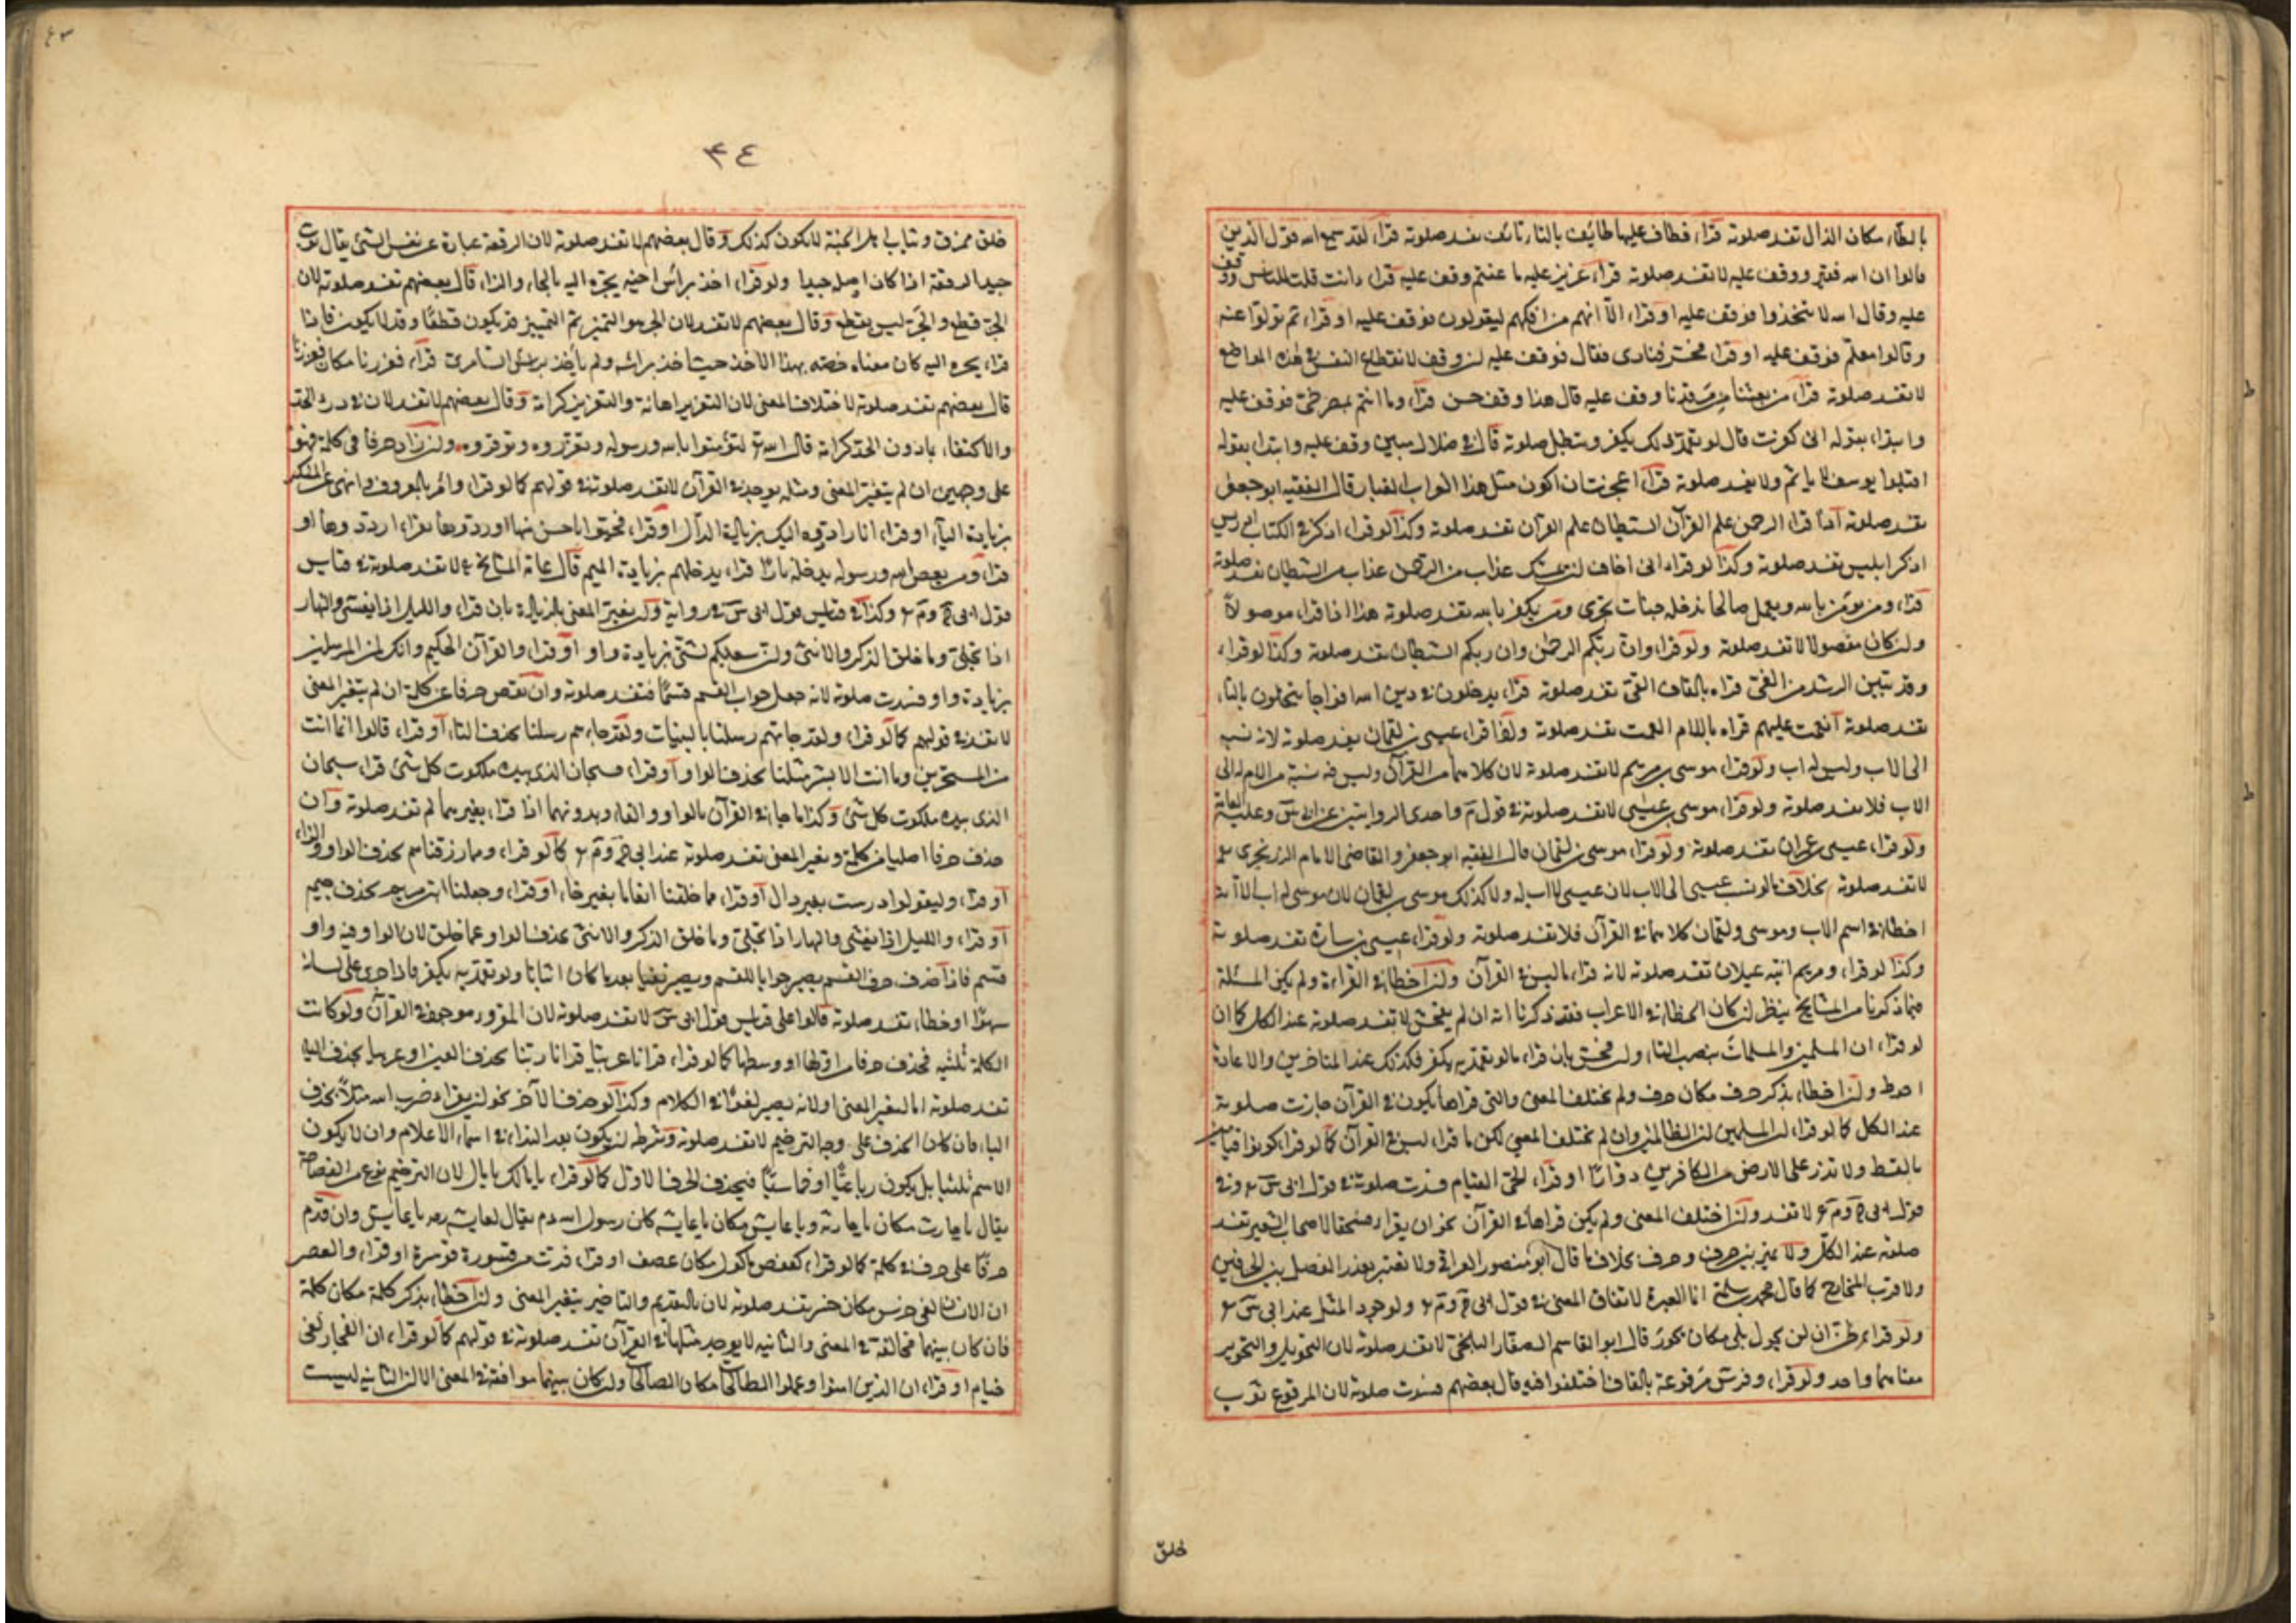 بالظاء مكان الذال تفسد صلوته قراء فطاف عليها طائف بالتاء تائف تفسد صلوته قراء لقد سمع الله قول الذين
قالوا ان الله فقير ووقف عليه لا تفسد صلوته قراء عزيز عليه ما عنتم وقف عليه قراء وانت قلت للناس ووقف
عليه وقال الله لا تتخذوا فوقف عليه او قراء الا انهم من افكهم ليقولون فوقف عليه او قراء ثم تولوا عنه
وقالوا معلم فوقف عليه او قراء فحشر فنادى فقال فوقف عليه لان وقف لانقطاع النفس في هذه المواضع
لا تفسد صلوته قراء من بعثنا من مرقدنا وقف عليه قال هذا وقف حسن قراء وما انتم بمصرخي فوقف عليه
وابتداء بقوله انى كفرت قال لو تعمد ذلك يكفر وتبطل صلوته قال في ضلال مبين وقف عليه وابتداء بقوله
اقتلوا يوسف لا ياثم ولا تفسد صلوته قراء اعجزت ان اكون مثل هذا الغراب الغبار قال الفقيه ابو جعفر
تفسد صلوته اما قراء الرحمن علم القرآن الشيطان علم القرآن تفسد صلوته وكذا لو قراء اذكر في الكتاب ادريس
اذكر ابليس تفسد صلوته وكذا لو قراء انى اخاف ان يمسك عذاب من الرحمن عذاب من الشيطان تفسد صلوته
قراء ومن يؤمن بالله ويعمل صالحا ندخله جنات تجرى ومن يكفر بالله تفسد صلوته هذا اذا قراء موصولا
وان كان مفصولا لا تفسد صلوته ولو قراء وان ربكم الرحمن وان ربكم الشيطان تفسد صلوته وكذا لو قراء
وقد تبين الرشد من الغى قراء بالقاف القى تفسد صلوته قراء يدخلون في دين الله افواجا يتخلون بالتاء
تفسد صلوته انعمت عليهم قراه باللام العمت تفسد صلوته ولو قراء عيسى بن لقمان تفسد صلوته لانه نسبه
الى الاب وليس له اب ولو قراء موسى بن مريم لا تفسد صلوته لان كلاهما من القرآن وليس فيه نسبة من لا اب له الى
الاب فلا تفسد صلوته ولو قراء موسى بن عيسى لا تفسد صلوته في قول م واحدى الروايتين عن ابى س وعليه العامة
ولو قراء عيسى بن عمران تفسد صلوته ولو قراء موسى بن لقمان قال الفقيه ابو جعفر والقاضى الامام الزرنجرى
لا تفسد صلوته بخلاف ما لو نسب عيسى الى الاب لان عيسى لا اب له ولا كذلك موسى بن لقمان لان موسى له اب الا انه
اخطاء في اسم الاب وموسى ولقمان كلاهما في القرآن فلا تفسد صلوته ولو قراء عيسى بن سارة تفسد صلوته
وكذا لو قراء ومريم ابنة عيلان تفسد صلوته لانه قراء ما ليس في القرآن وان اخطاء في القراءة ولم يكن المسئلة
فيما ذكرنا من المشايخ ينظر ان كان الخطاء في الاعراب فقد ذكرنا انه ان لم يفحش لا تفسد صلوته عند الكل كما ان
لو قراء ان المسلمين والمسلمات بنصب التاء وان فحش بان قراء ما لو تعمد به يكفر فكذلك عند المتاخرين والاعادة
احوط وان اخطاء بذكر حرف مكان حرف ولم يختلف المعنى والتى قراها يكون في القرآن جازت صلوته
عند الكل كما لو قراء ان المسلمين ان الظالمين وان لم يختلف المعنى لكن ما قراء ليس في القرآن كما لو قراء كونوا قيامين
بالقسط ولا تذر على الارض من الكافرين دوارا او قراء الحى القيام فسدت صلوته في قول ابى س وفي
قول ابى ح وم لا تفسد وان اختلف المعنى ولم يكن قراها في القرآن نحو ان يقراء فسحقا لاصحاب الشعير تفسد
صلوته عند الكل ولا يميز بين حرف وحرف بخلاف ما قال ابو منصور العراقى ولا تعتبر بعذر الفصل بين الحرفين
ولا قرب المخارج كما قال محمد بن سلمة انما العبرة لاتفاق المعنى في قول ابى ح وم ولوجود المثل عند ابى س
ولو قراء ظن ان لن يحول بلى مكان يحور قال ابو القاسم الصفار البلخى لا تفسد صلوته لان التحويل والتحوير
معناهما واحد ولو قراء وفرش مرقوعة بالقاف اختلفوا فيه قال بعضهم فسدت صلوته لان المرقوع ثوب
خلق
٤٣
٣٤
خلق ممزق وثياب اهل الجنة لا يكون كذلك وقال بعضهم لا تفسد صلوته لان الرقعة عبارة عن نفس الشئ يقال ثوب
جيد الرقعة اذا كان اصله جيدا ولو قراء اخذ براس اخيه يجزه اليه بالجاء والزاء قال بعضهم تفسد صلوته لان
الجز قطع والجر ليس بقطع وقال بعضهم لا تفسد لان الجز هو التميز ثم التمييز قد يكون قطعا وقد لا يكون فاذا
قراء يجزه اليه كان معناه خصه بهذا الاخذ حيث اخذ براسه ولم ياخذ براس السامرى قراء فعززنا مكان فعزرنا
قال بعضهم تفسد صلوته لاختلاف المعنى لان التعزير اهانة والتعزيز كرامة وقال بعضهم لا تفسد لان في درء الحد
والاكتفاء بما دون الحد كرامة قال الله تع لتؤمنوا بالله ورسوله وتعزروه وتوقروه وان زاد حرفا في كلمة فهو
على وجهين ان لم يتغير المعنى ومثله يوجد في القرآن لا تفسد صلوته في قولهم كما لو قراء وامر بالمعروف وانهى عن المنكر
بزيادة الياء او قراء انا رادوه اليك بزيادة الدال او قراء فحيوا باحسن منها او ردوها قراء ارددوها او
قراء ومن يعص الله ورسوله يدخله نارا قراء يدخلهم بزيادة الميم قال عامة المشايخ لا تفسد صلوته في قياس
قول ابى ح وم وكذا في قياس قول ابى س في رواية وان تغير المعنى بالزيادة بان قراء والليل اذا يغشى والنهار
اذا تجلى وما خلق الذكر والانثى وان سعيكم لشتى بزيادة واو او قراء والقرآن الحكيم وانك لمن المرسلين
بزيادة واو فسدت صلوته لانه جعل جواب القسم قسما فتفسد صلوته وان نقص حرفا عن كلمة ان لم يتغير المعنى
لا تفسد في قولهم كما لو قراء ولقد جاءتهم رسلنا بالبينات ولقد جاءهم رسلنا بحذف التاء او قراء قالوا انما انت
من المسحرين وما انت الا بشر مثلنا بحذف الواو او قراء فسبحان الذى بيده ملكوت كل شئ قراء سبحان
الذى بيده ملكوت كل شئ وكذا ما جاء في القرآن بالواو والفاء وبدونهما اذا قراء بغيرهما لم تفسد صلوته وان
حذف حرفا اصليا من كلمة وتغير المعنى تفسد صلوته عند ابى ح وم كما لو قراء ومما رزقناهم بحذف الواو والزاء
او قراء وليقولوا درست بغير دال او قراء ما خلقنا انعاما بغير خاء او قراء وجعلنا ابن مريم بحذف جيم
او قراء والليل اذا يغشى والنهار اذا تجلى وما خلق الذكر والانثى بحذف الواو عما خلق لان الواو فيه واو
قسم فاذا حذف حرف القسم يصير جوابا للقسم ويصير نفيا بعد ما كان اثباتا ولو تعمد به يكفر فاذا جرى على لسانه
سهوا او خطاء تفسد صلوته قالوا على قياس قول ابى س لا تفسد صلوته لان المقروء موجود في القرآن ولو كانت
الكلمة ثلثيه فحذف حرفا من اولها او وسطها كما لو قراء قرانا عربيا قرانا ربيا بحذف العين او عربا بحذف الياء
تفسد صلوته اما لتغير المعنى او لانه يصير لغوا في الكلام وكذا لو حذف الآخر نحو ان يقراء ضرب الله مثلا بحذف
الباء فان كان الحذف على وجه الترخيم لا تفسد صلوته وشرطه ان يكون بعد النداء في اسماء الاعلام وان لا يكون
الاسم ثلثيا بل يكون رباعيا او خماسيا فيحذف الحرف الاول كما لو قراء يا مالك يا مال لان الترخيم نوع من الفصاحة
يقال يا حارث مكان يا حارثة ويا عايش مكان يا عايشة كان رسول الله عم يقال لعايشة رضه يا عايش وان قدم
حرفا على حرف في كلمة كما لو قراء كعفص ماكول مكان عصف او قراء فرت من قسورة قوسرة او قراء والعصر
ان الانسان لفى خرس مكان خسر تفسد صلوته لان بالتقديم والتاخير يتغير المعنى وان اخطاء بذكر كلمة مكان كلمة
فان كان بينهما مخالفة في المعنى والثانيه لا يوجد مثلها في القرآن تفسد صلوته في قولهم كما لو قراء ان الفجار لفى
خيام او قراء ان الذين امنوا وعملوا الطالحات مكان الصالحات وان كان بينهما موافقة في المعنى الا ان الثانية ليست